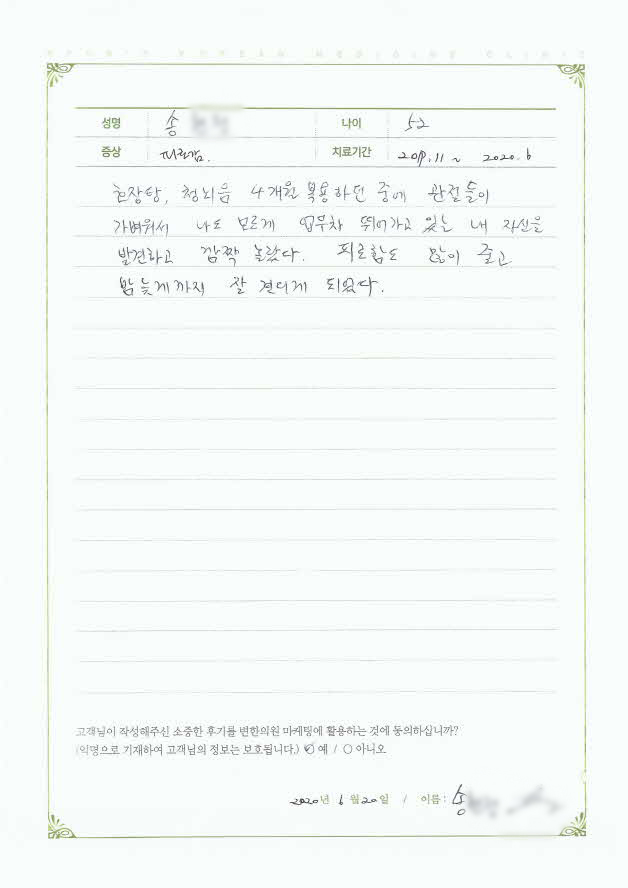 성명 송 나이 52
증상 피로감. 치료기간 2019.11 ~ 2020.6
천장탕, 청뇌음 4개월 복용하던 중에 관절들이
가벼워서 나도 모르게 업무차 뛰어가고 있는 내 자신을
발견하고 깜짝 놀랐다. 피로함도 많이 줄고
밤늦게까지 잘 견디게 되었다.
고객님이 작성해주신 소중한 후기를 변한의원 마케팅에 활용하는 것에 동의하십니까?
(익명으로 기재하여 고객님의 정보는 보호됩니다.) ✓○ 예 / ○ 아니오
2020년 6월 20일 / 이름 : 송